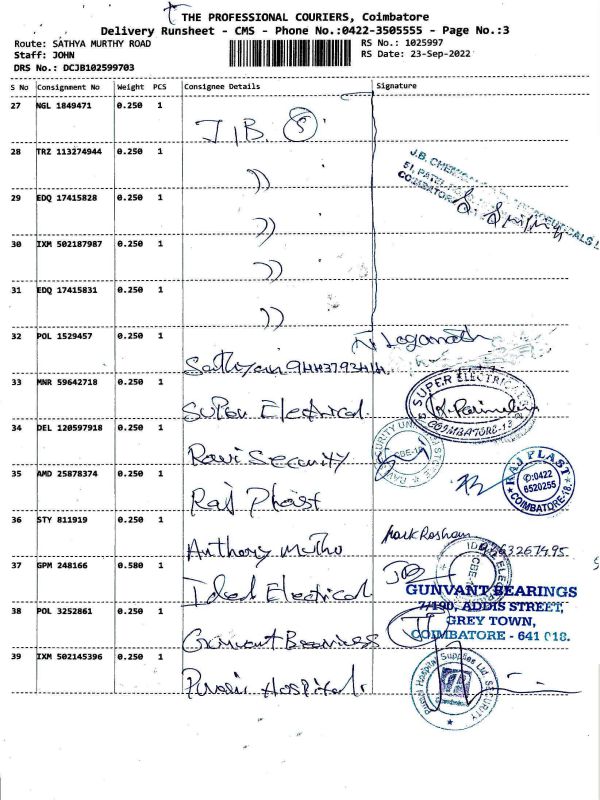 THE PROFESSIONAL COURIERS, Coimbatore
Delivery Runsheet - CMS - Phone No.:0422-3505555 - Page No.:3
Route: SATHYA MURTHY ROAD
RS No.: 1025997
Staff: JOHN
RS Date: 23-Sep-2022
DRS No.: DCJB102599703
S No Consignment No Weight PCS Consignee Details Signature
27 NGL 1849471 0.250 1
J.B. 5
28 TRZ 113274944 0.250 1
J.B. CHEMI
51, PATEL
COIMBATOR
29 EDQ 17415828 0.250 1
30 IXM 502187987 0.250 1
31 EDQ 17415831 0.250 1
32 POL 1529457 0.250 1
Loganath
33 MNR 59642718 0.250 1
Super Electrical
SUPER ELECTRICAL
COIMBATORE-13
34 DEL 120597918 0.250 1
Ravi Security
CBE-
35 AMD 25878374 0.250 1
Raj Plast
RAJ PLAST
✆:0422
6520255
COIMBATORE-18.
36 STY 811919 0.250 1
Anthony Muthu
37 GPM 248166 0.580 1
Ideal Electrical
GUNVANT BEARINGS
7/190, ADDIS STREET,
GREY TOWN,
COIMBATORE - 641 018.
38 POL 3252861 0.250 1
Gunvant Bearings
39 IXM 502145396 0.250 1
Hospital
Hospital Supplies Ltd. SECURITY